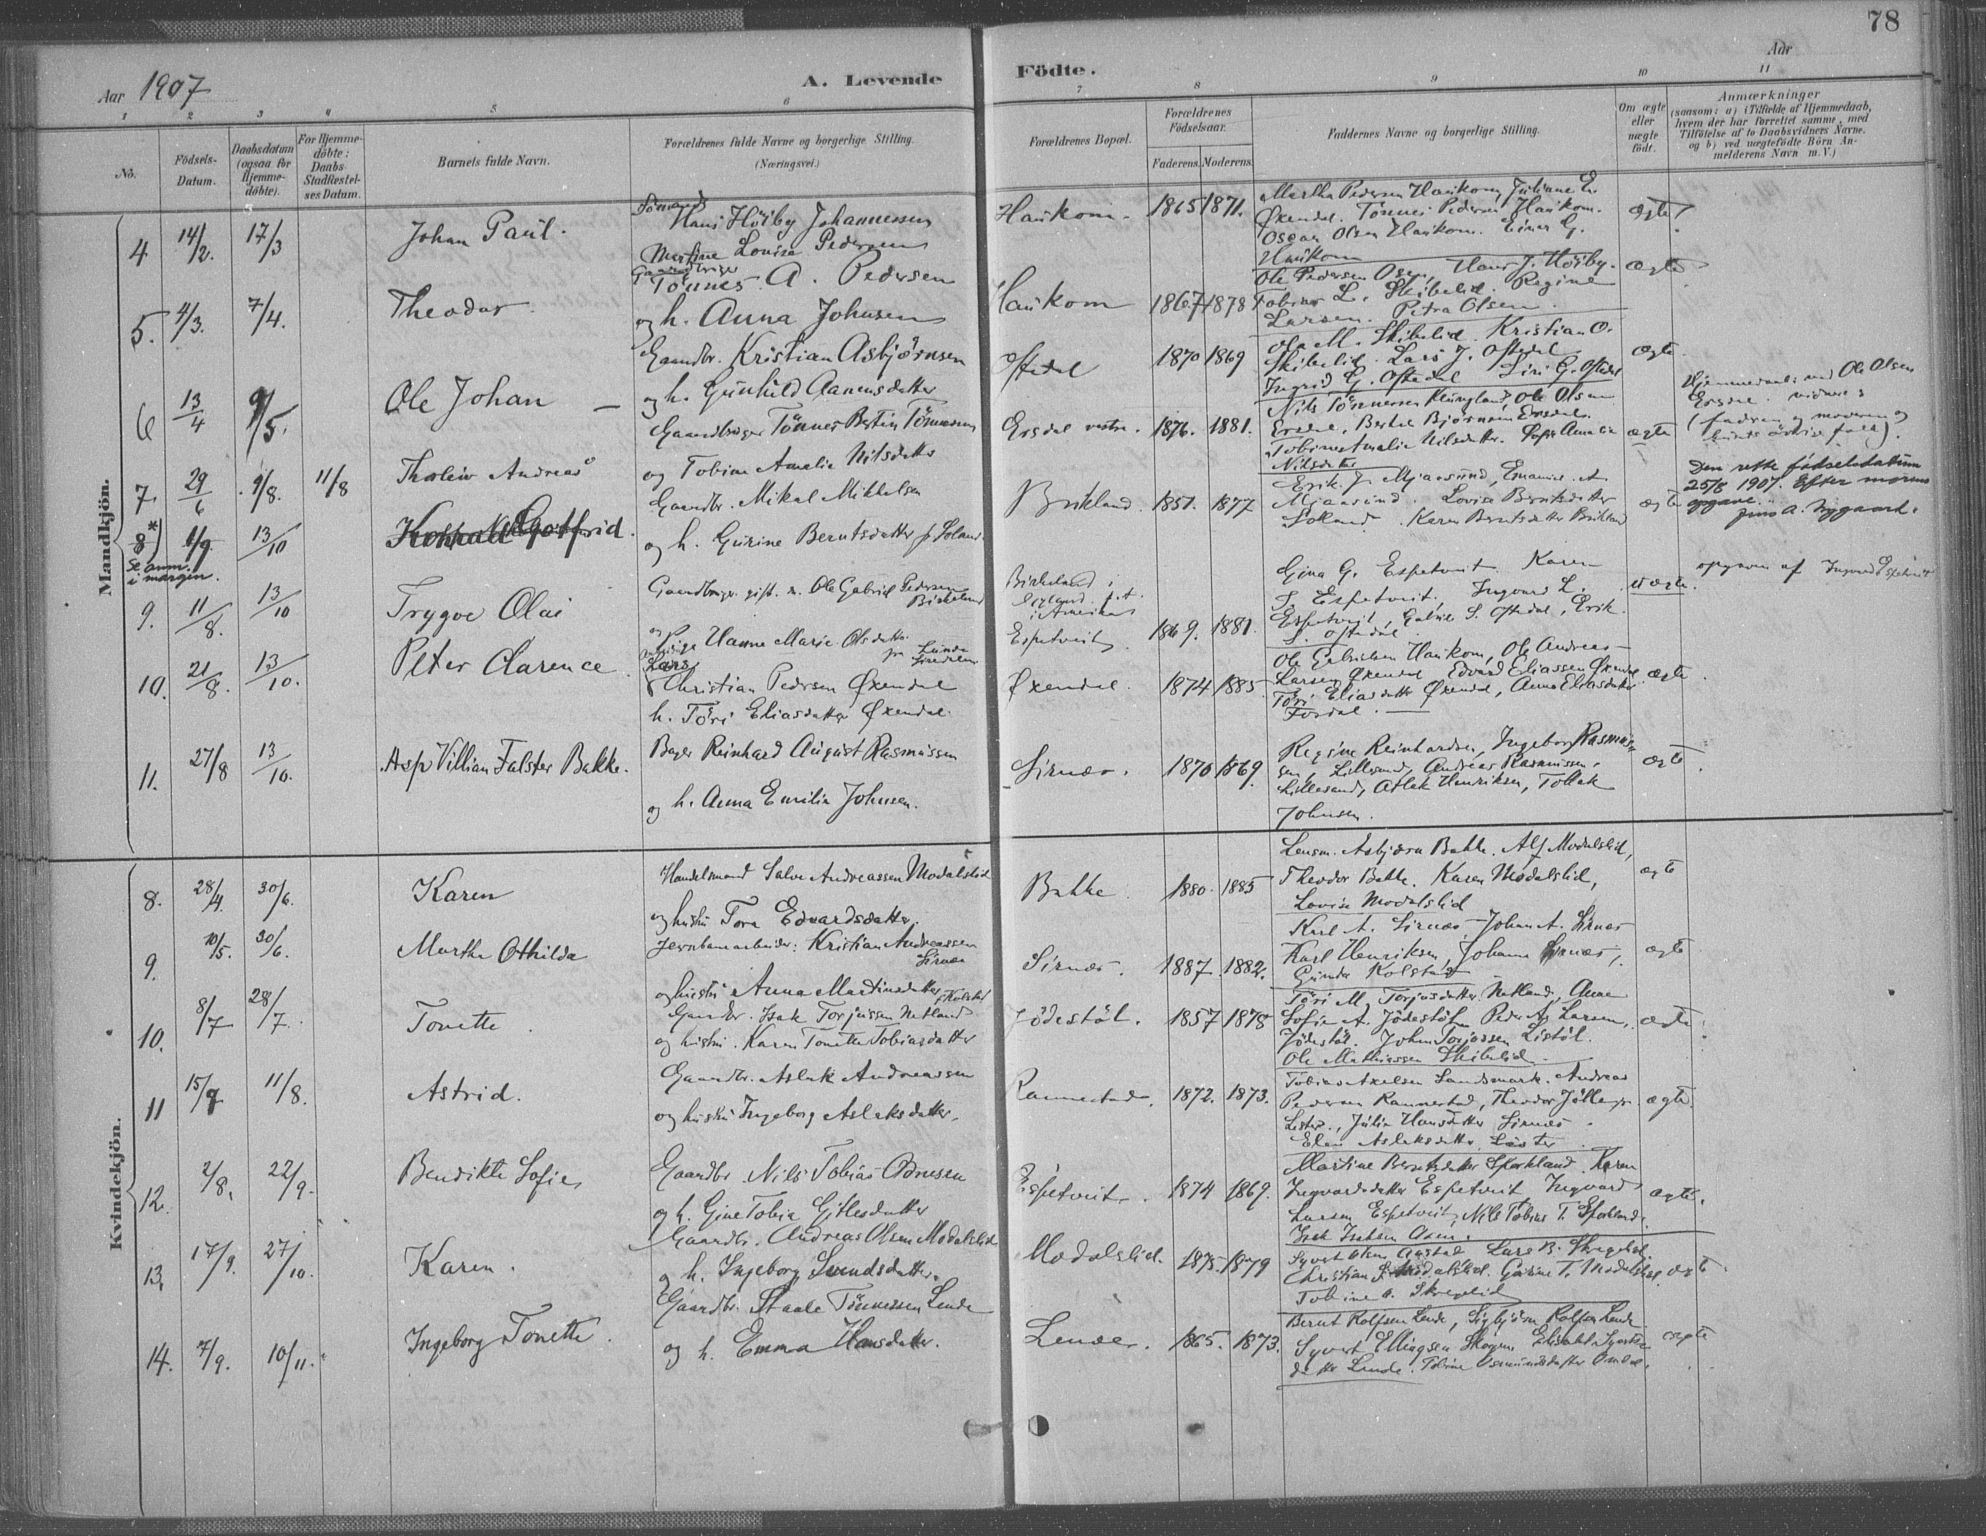 78
Aar 1907
A. Levende Födte.
Aar
1 2 3 4 5 6 7 8 9 10 11
No.
Födsels-Datum.
Daabsdatum (ogsaa for Hjemme-döbte).
For Hjemme-döbte: Daabs Stadfæstel-ses Datum.
Barnets fulde Navn.
Forældrenes fulde Navne og borgerlige Stilling. (Næringsvei.)
Forældrenes Bopæl.
Forældrenes Födselsaar.
Faderens. Moderens.
Faddernes Navne og borgerlige Stilling.
Om ægte eller uægte födt.
Anmærkninger
(saasom: a) i Tilfælde af Hjemmedaab, hvem der har forrettet samme, med Tilföielse af to Daabsvidners Navne. og b) ved uægtefödte Börn An-melderens Navn m. V.)
Mandkjön.
4 14/2. 17/3 Johan Paul.
Sömand Hans Höiby Johannessen
Martine Louise Pedersen
Haukom. 1865 1871.
Martha Pedersen Haukom, Juliane E.
Øxendal. Tönnes Pedersen Haukom.
Oscar Olsen Haukom. Einar G.
Haukom
ægte
5. 4/3. 7/4. Theodor.
Gaardbruger Tönnes A. Pedersen
og h. Anna Johnsen
Haukom 1867 1878
Ole Pedersen Osen, Hans J. Höiby.
Tobias L. Skibelid. Regine
Larsen. Petra Olsen.
ægte
6 13/4 9/5. Ole Johan
Gaardbr. Kristian Asbjørnsen
og h. Gunhild Aanensdatter
Oftedal 1870 1869
Ola M. Skibelid. Kristian O.
Skibelid. Lars J. Oftedal
Ingrid G. Oftedal Siri G. Oftedal
ægte.
7. 29/6 9/8. 11/8 Thorleiv Andreas
Gaardbruger Tönnes Bertin Tönnesen
og Tobine Amalie Nilsdatter
Ersdal vestre. 1876. 1881.
Nils Tönnesen Klungland, Ole Olsen
Ersdal, Bertel Bjørnsen Ersdal.
Tobine Amalie Nilsdatter. Sofie Amalie
Nilsdatter
ægte
Hjemmedøbt ved Ole Olsen
Ersdal. vidner:
(faderen og moderen og
8*) 6/9. 13/10 Konrad Gotfrid.
Se anm. i margen.
Gaardbr. Mikal Mikkelsen
og h. Gurine Berntsdatter
Birkland. 1851. 1877
Erik J. Mjaasund, Emanuel A.
Mjaasund. Lovise Berntsdatter
Soland. Karen Berntsdatter Birkland
ægte
Den rette födselsdatum
25/8 1907. Efter morens
opgave.
Jens A. Nygaard.
9. 11/8. 13/10 Trygve Olai
Gaardbruger gift. m. Ole Gabriel Pedersen
Birkeland
og pige Hanne Marie Olsdatter
Birkeland i
i Amerika
Espetveit 1869. 1881.
Gina G. Espetveit. Karen
S. Espetveit. Ingvard L.
Espetveit, Gabriel S. Oftedal, Erik
S. Oftedal
uægte.
opgiven af Ingvard Espetveit
10. 21/8. 13/10. Peter Clarence.
Lars Christian Pedersen Øxendal
h. Töri Eliasdatter Øxendal.
Øxendal. 1874 1885
Ole Gabrielsen Haukom, Ole Andreas
Larsen Øxendal Edvard Eliassen Øxendal
Töri Eliasdatter Øxendal, Anna Eliasdatter
ægte.
11. 27/8 13/10. Asp Villian Falster Bakke.
Bager Reinhard August Rasmussen
og h. Anna Emilie Johnsen.
Sirnæs. 1870 1869.
Regine Reinhardsen, Ingeborg Rasmus-
sen, Lillesand, Andreas Rasmussen.
Lillesand, Aslak Henriksen, Tollak
Johnsen.
ægte
Kvindekjön.
8. 28/4. 30/6. Karen
Handelsmand Salve Andreassen Modalslid
og hustru Tora Edvardsdatter.
Bakke 1880. 1885
Lensm. Asbjørn Bakke. Alf Modalslid,
Theodor Bakke. Karen Modalslid,
Lovise Modalslid
ægte
9. 10/5. 30/6. Martha Othilda
Jernbanearbeider: Kristian Andreassen
Sirnæs
og hustru Anna Martinsdatter
Sirnæs. 1887. 1882.
Karl A. Sirnæs, Johan A. Sirnæs
Karl Henriksen, Johanne Sirnæs,
Gunda Kolstad
ægte
10. 8/7 28/7. Tonette.
Gaardbr. Isak Torjussen Netland
og hustru. Karen Tonette Tobiasdatter
Jödestöl. 1857 1878
Töri M. Torjusdatter Netland, Anne
Sofie A. Jödestöl. Peder A. Larsen,
Jödestöl. Johan Torjussen Listöl.
Ole Mathiassen Skibelid
ægte
11 15/7 11/8. Astrid.
Gaardbr. Aslak Andreassen
og hustru Ingeborg Aslaksdatter.
Rannestad. 1872. 1873.
Tobias Axelsen Landsmark. Andreas
Pedersen Rannestad, Theodor
Julia Hansdatter Sirnæs.
Elen Aslaksdatter
ægte.
12. 2/8. 22/9. Bendikte Sofie
Gaardbr Nils Tobias
og h. Gine Tobia Gitlesdatter
Espetveit. 1874 1869.
Martine Berntsdatter Sporkland. Karen
Ingvardsdatter Espetveit Ingvard
Larsen Espetveit, Nils Tobias T. Sporkland.
Isak Isaksen Osen.
ægte.
13. 17/9. 27/10. Karen.
Gaardbr. Andreas Olsen Modalslid
og h. Ingeborg Svendsdatter.
Modalslid. 1875. 1879
Syvert Olsen Aastøl Lars B. Skregelid.
Christian S. Modalslid. Gurine T. Modalslid.
Tobine A. Skregelid
ægte
14. 7/9. 10/11. Ingeborg Tonette.
Gaardbr. Staale Tönnessen Lende
og h. Emma Hansdatter.
Lende. 1865. 1873.
Bernt Rolfsen Lende, Sigbjörn Rolfsen Lende
Syvert Ellingsen Skogen Elisabet Syverts-
datter Lende. Tobine Osmundsdatter Omdal.
ægte